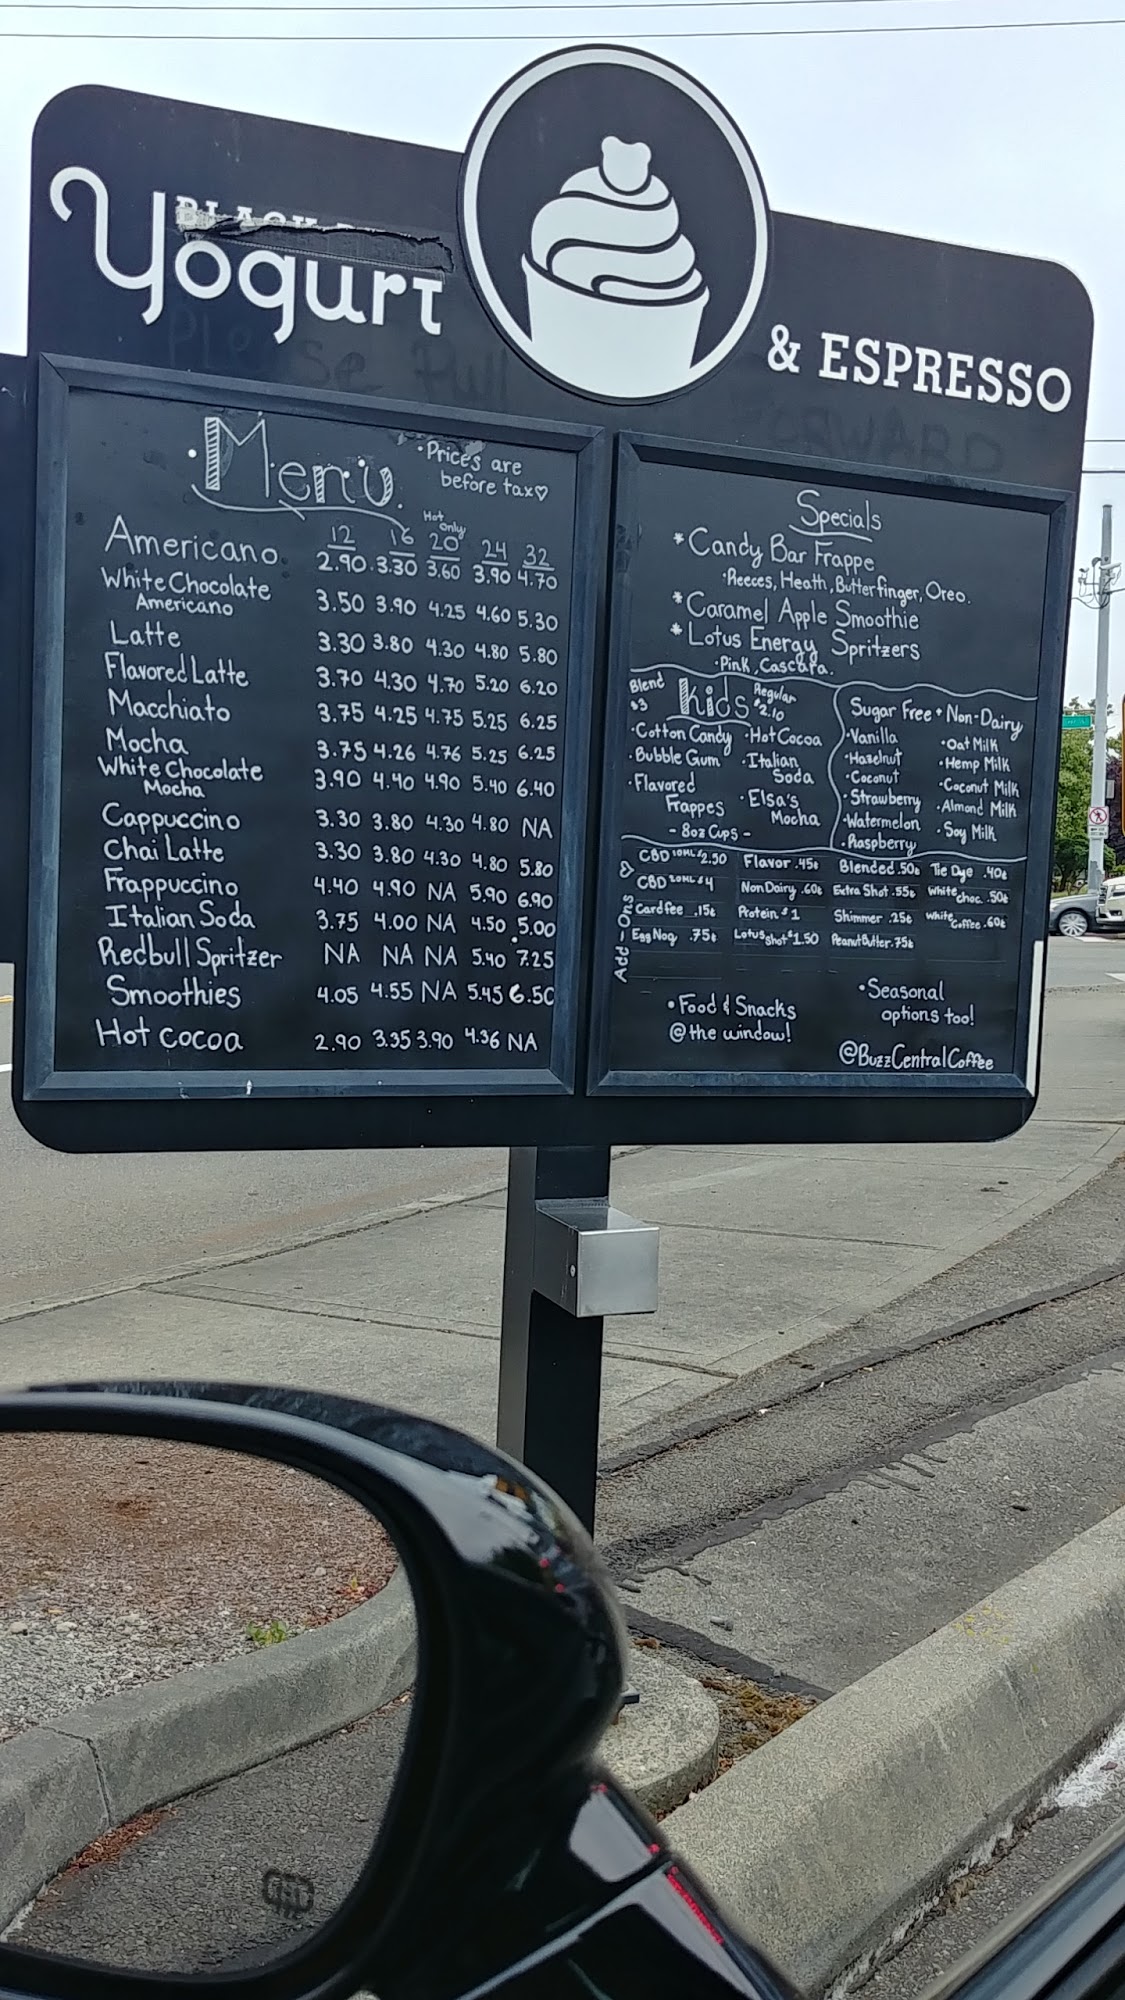 BLACK
Yogurt
& ESPRESSO
Please Pull
FORWARD
Menu
•Prices are
before tax♡
Hot
only
12 16 20 24 32
Americano 2.90 3.30 3.60 3.90 4.70
White Chocolate
Americano 3.50 3.90 4.25 4.60 5.30
Latte 3.30 3.80 4.30 4.80 5.80
Flavored Latte 3.70 4.30 4.70 5.20 6.20
Macchiato 3.75 4.25 4.75 5.25 6.25
Mocha 3.75 4.26 4.76 5.25 6.25
White Chocolate
Mocha 3.90 4.40 4.90 5.40 6.40
Cappuccino 3.30 3.80 4.30 4.80 NA
Chai Latte 3.30 3.80 4.30 4.80 5.80
Frappuccino 4.40 4.90 NA 5.90 6.90
Italian Soda 3.75 4.00 NA 4.50 5.00
Redbull Spritzer NA NA NA 5.40 7.25
Smoothies 4.05 4.55 NA 5.45 6.50
Hot cocoa 2.90 3.35 3.90 4.36 NA
Specials
*Candy Bar Frappe
•Reeces, Heath, Butterfinger, Oreo.
*Caramel Apple Smoothie
*Lotus Energy Spritzers
•Pink, Cascara.
Blend
$3
Kids
Regular
$2.10
•Cotton Candy
•Bubble Gum
•Flavored
Frappes
•Hot Cocoa
•Italian
Soda
•Elsa's
Mocha
- 8oz Cups -
Sugar Free + Non-Dairy
•Vanilla
•Hazelnut
•Coconut
•Strawberry
•Watermelon
•Raspberry
•Oat Milk
•Hemp Milk
•Coconut Milk
•Almond Milk
•Soy Milk
Add-Ons ♡
CBD 10ML $2.50 Flavor .45¢ Blended .50¢ Tie Dye .40¢
CBD 20ML $4 Non Dairy .60¢ Extra Shot .55¢ White choc. .50¢
Cardfee .15¢ Protein $1 Shimmer .25¢ White Coffee .60¢
Egg Nog .75¢ Lotus shot $1.50 Peanut Butter .75¢
•Food & Snacks
@ the window!
•Seasonal
options too!
@BuzzCentralCoffee